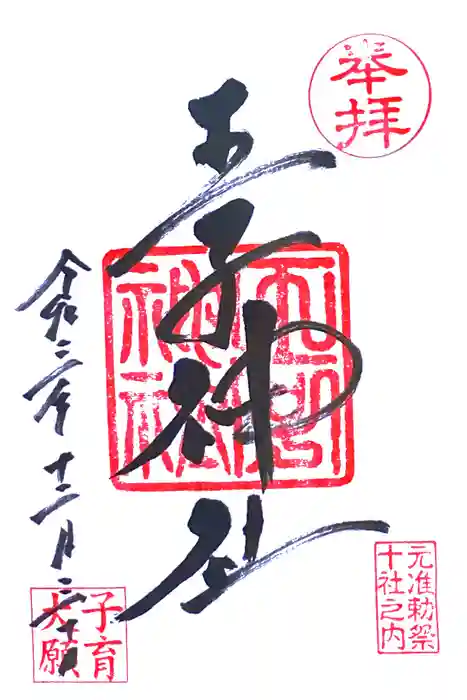 奉拝
王子神社
神社
令和二年十二月
元准勅祭
十社之内
子育
大願